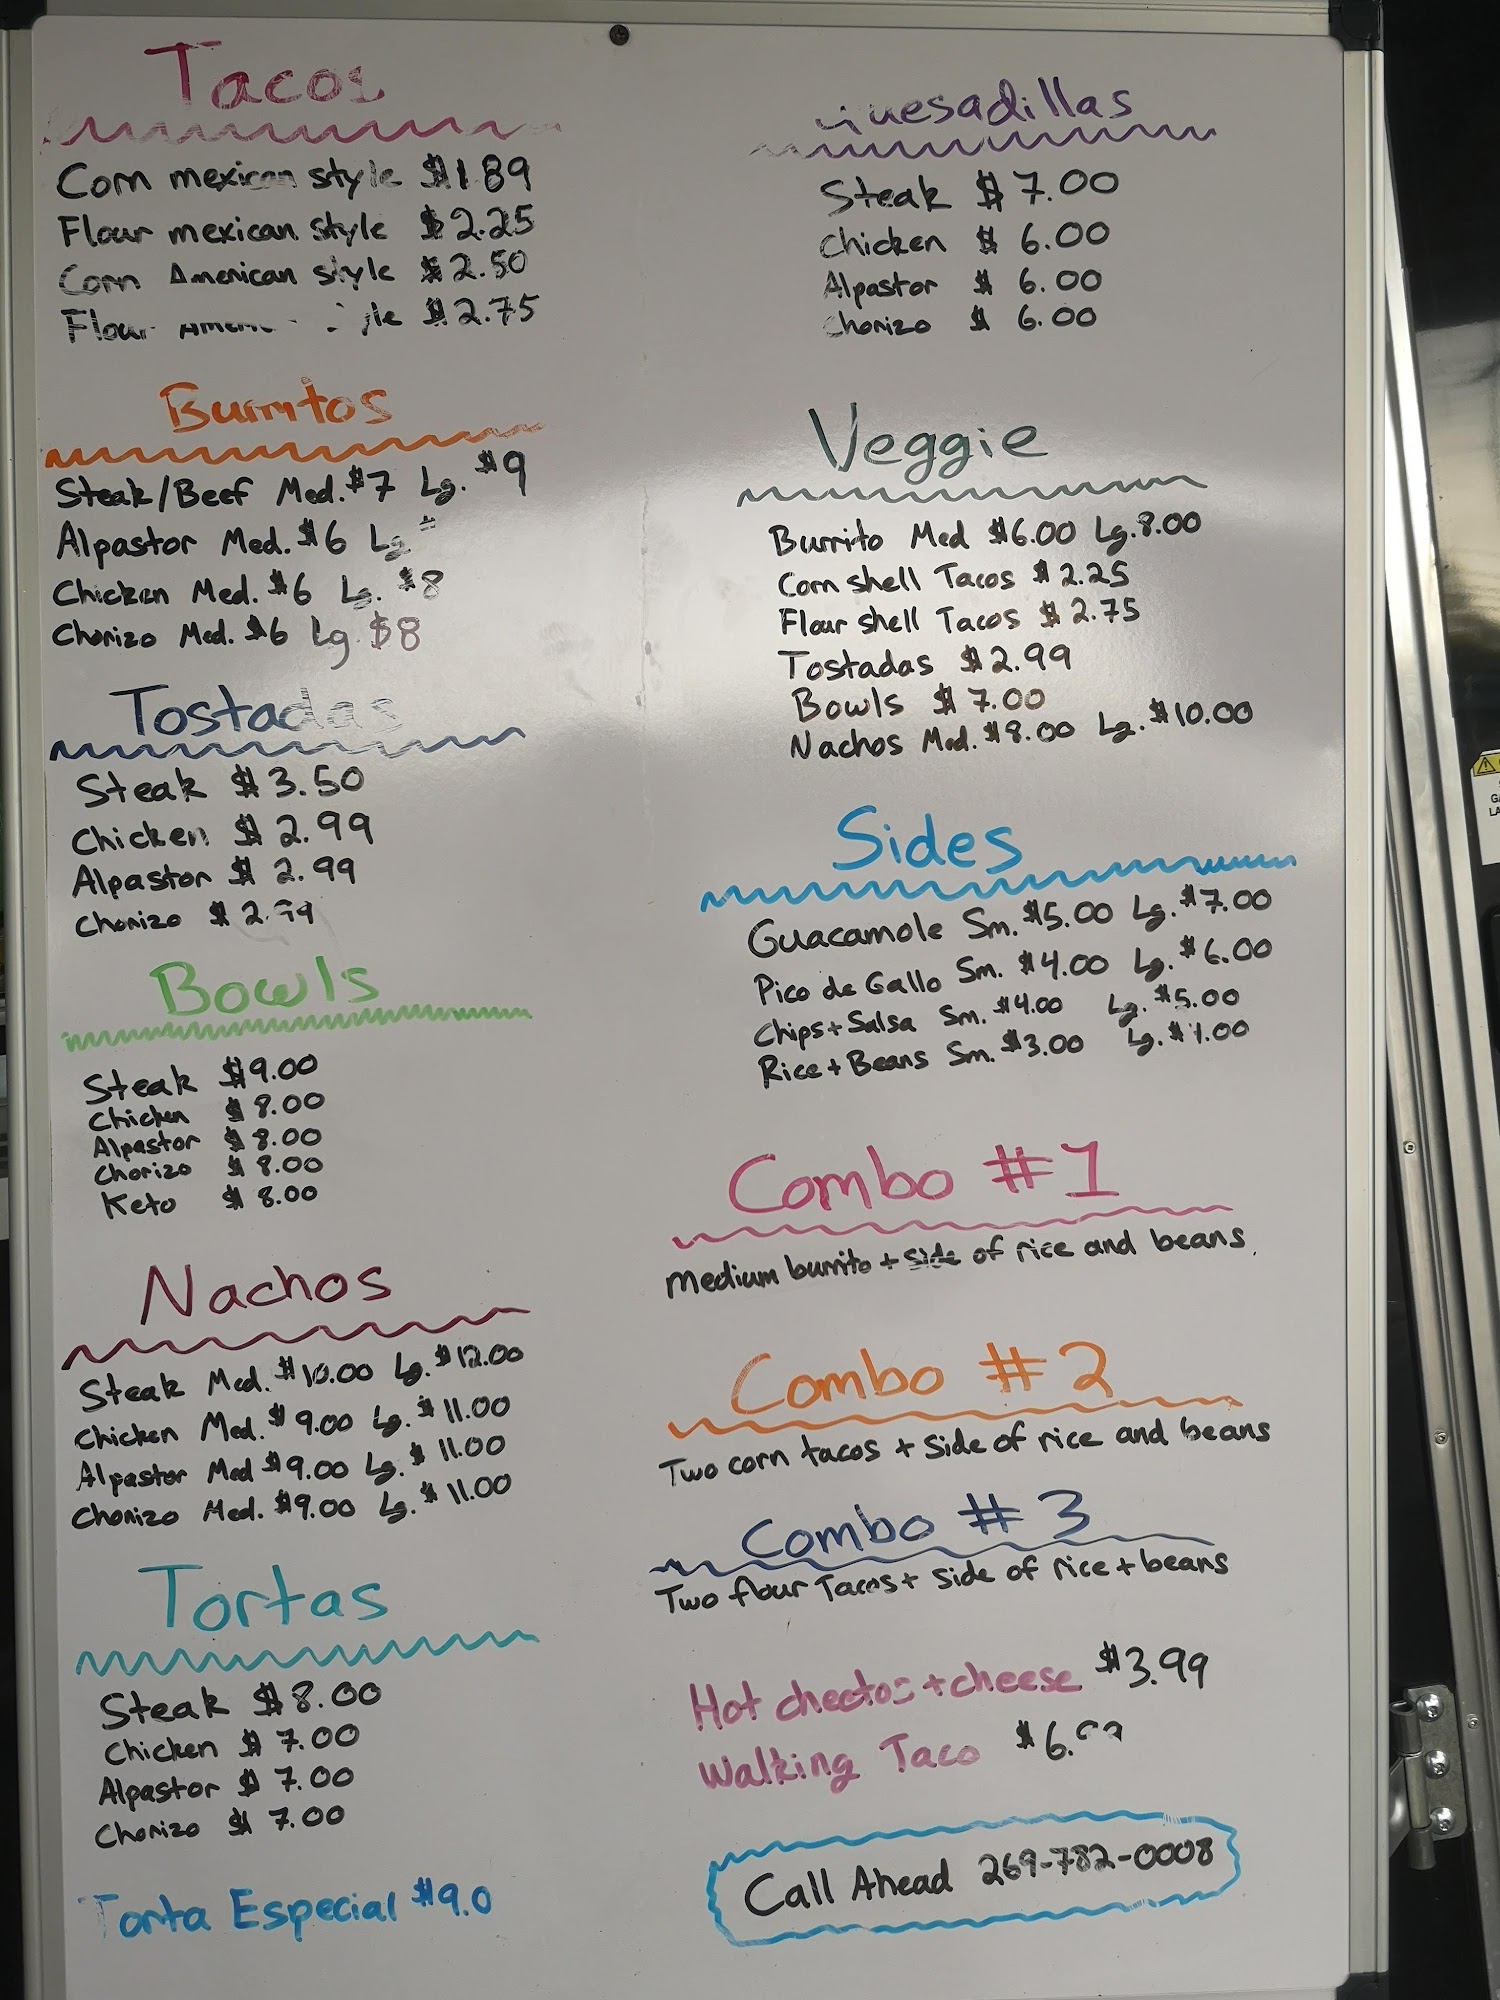 Tacos
Corn mexican style $1.89
Flour mexican style $2.25
Corn American style $2.50
Flour $2.75
Burritos
Steak/Beef Med. $7 Lg. $9
Alpastor Med. $6 Lg
Chicken Med. $6 Lg. $8
Chorizo Med. $6 Lg $8
Tostadas
Steak $3.50
Chicken $2.99
Alpastor $2.99
Chorizo $2.99
Bowls
Steak $9.00
Chicken $8.00
Alpastor $8.00
Chorizo $8.00
Keto $8.00
Nachos
Steak Med. $10.00 Lg. $12.00
Chicken Med. $9.00 Lg. $11.00
Alpastor Med $9.00 Lg. $11.00
Chorizo Med. $9.00 Lg. $11.00
Tortas
Steak $8.00
Chicken $7.00
Alpastor $7.00
Chorizo $7.00
Torta Especial $9.0
Quesadillas
Steak $7.00
Chicken $6.00
Alpastor $6.00
Chorizo $6.00
Veggie
Burrito Med $6.00 Lg. 8.00
Corn shell Tacos $2.25
Flour shell Tacos $2.75
Tostadas $2.99
Bowls $7.00
Nachos Med. $8.00 Lg. $10.00
Sides
Guacamole Sm. $5.00 Lg. $7.00
Pico de Gallo Sm. $4.00 Lg. $6.00
Chips + Salsa Sm. $4.00 Lg. $5.00
Rice + Beans Sm. $3.00 Lg.
Combo #1
Medium burrito + side of rice and beans.
Combo #2
Two corn tacos + side of rice and beans
Combo #3
Two flour Tacos + side of rice + beans
Hot cheetos + cheese $3.99
Walking Taco
Call Ahead 269-782-0008